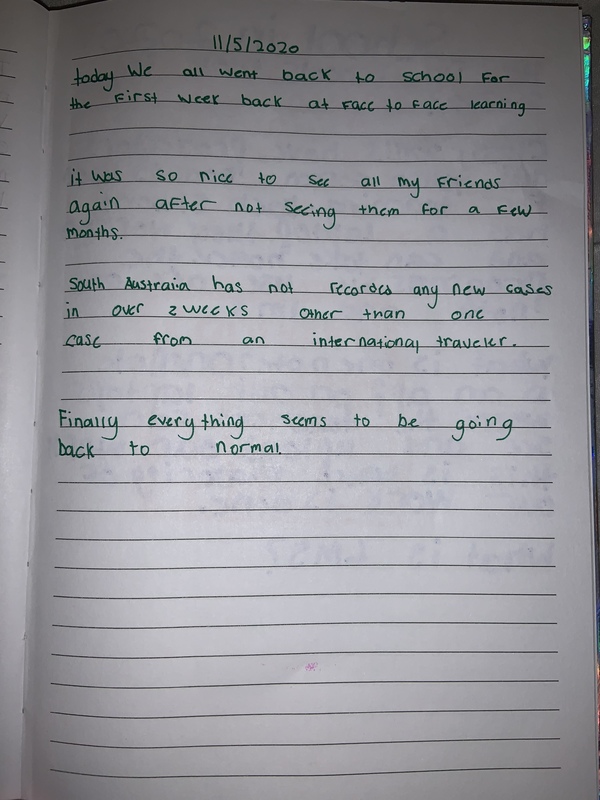 11/5/2020
today We all went back to school For
the First week back at Face to Face learning
it was so nice to see all my Friends
again aFter not seeing them for a Few
months.
South Austraia has not recorded any new cases
in over 2 weeks other than one
case from an international traveler.
Finally everything seems to be going
back to normal.